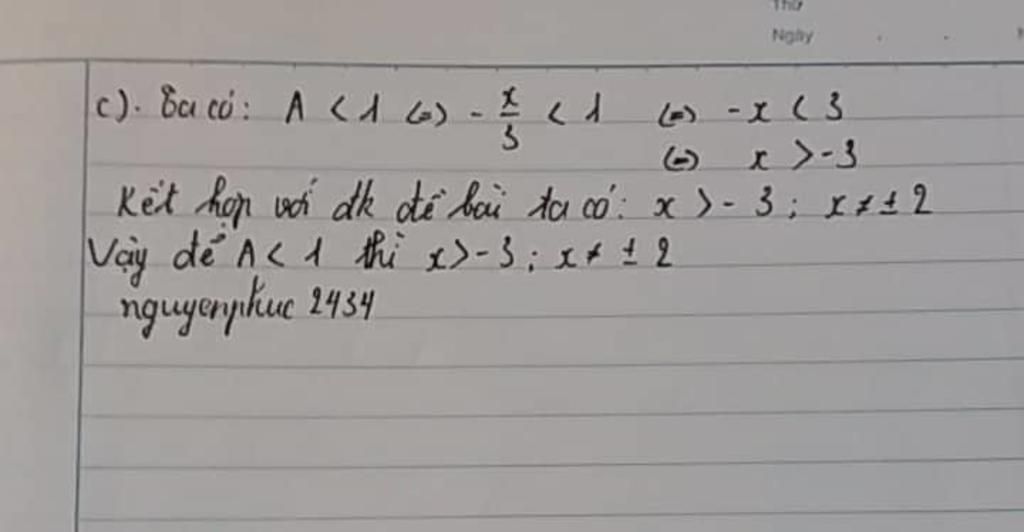 Thứ
Ngày
c). Ta có: A < 1 (=) - x/3 < 1 (=) -x < 3
(=) x > -3
Kết hợp với đk đề bài ta có: x > - 3 ; x ≠ ± 2
Vậy để A < 1 thì x > -3 ; x ≠ ± 2
nguyenphuc 2434